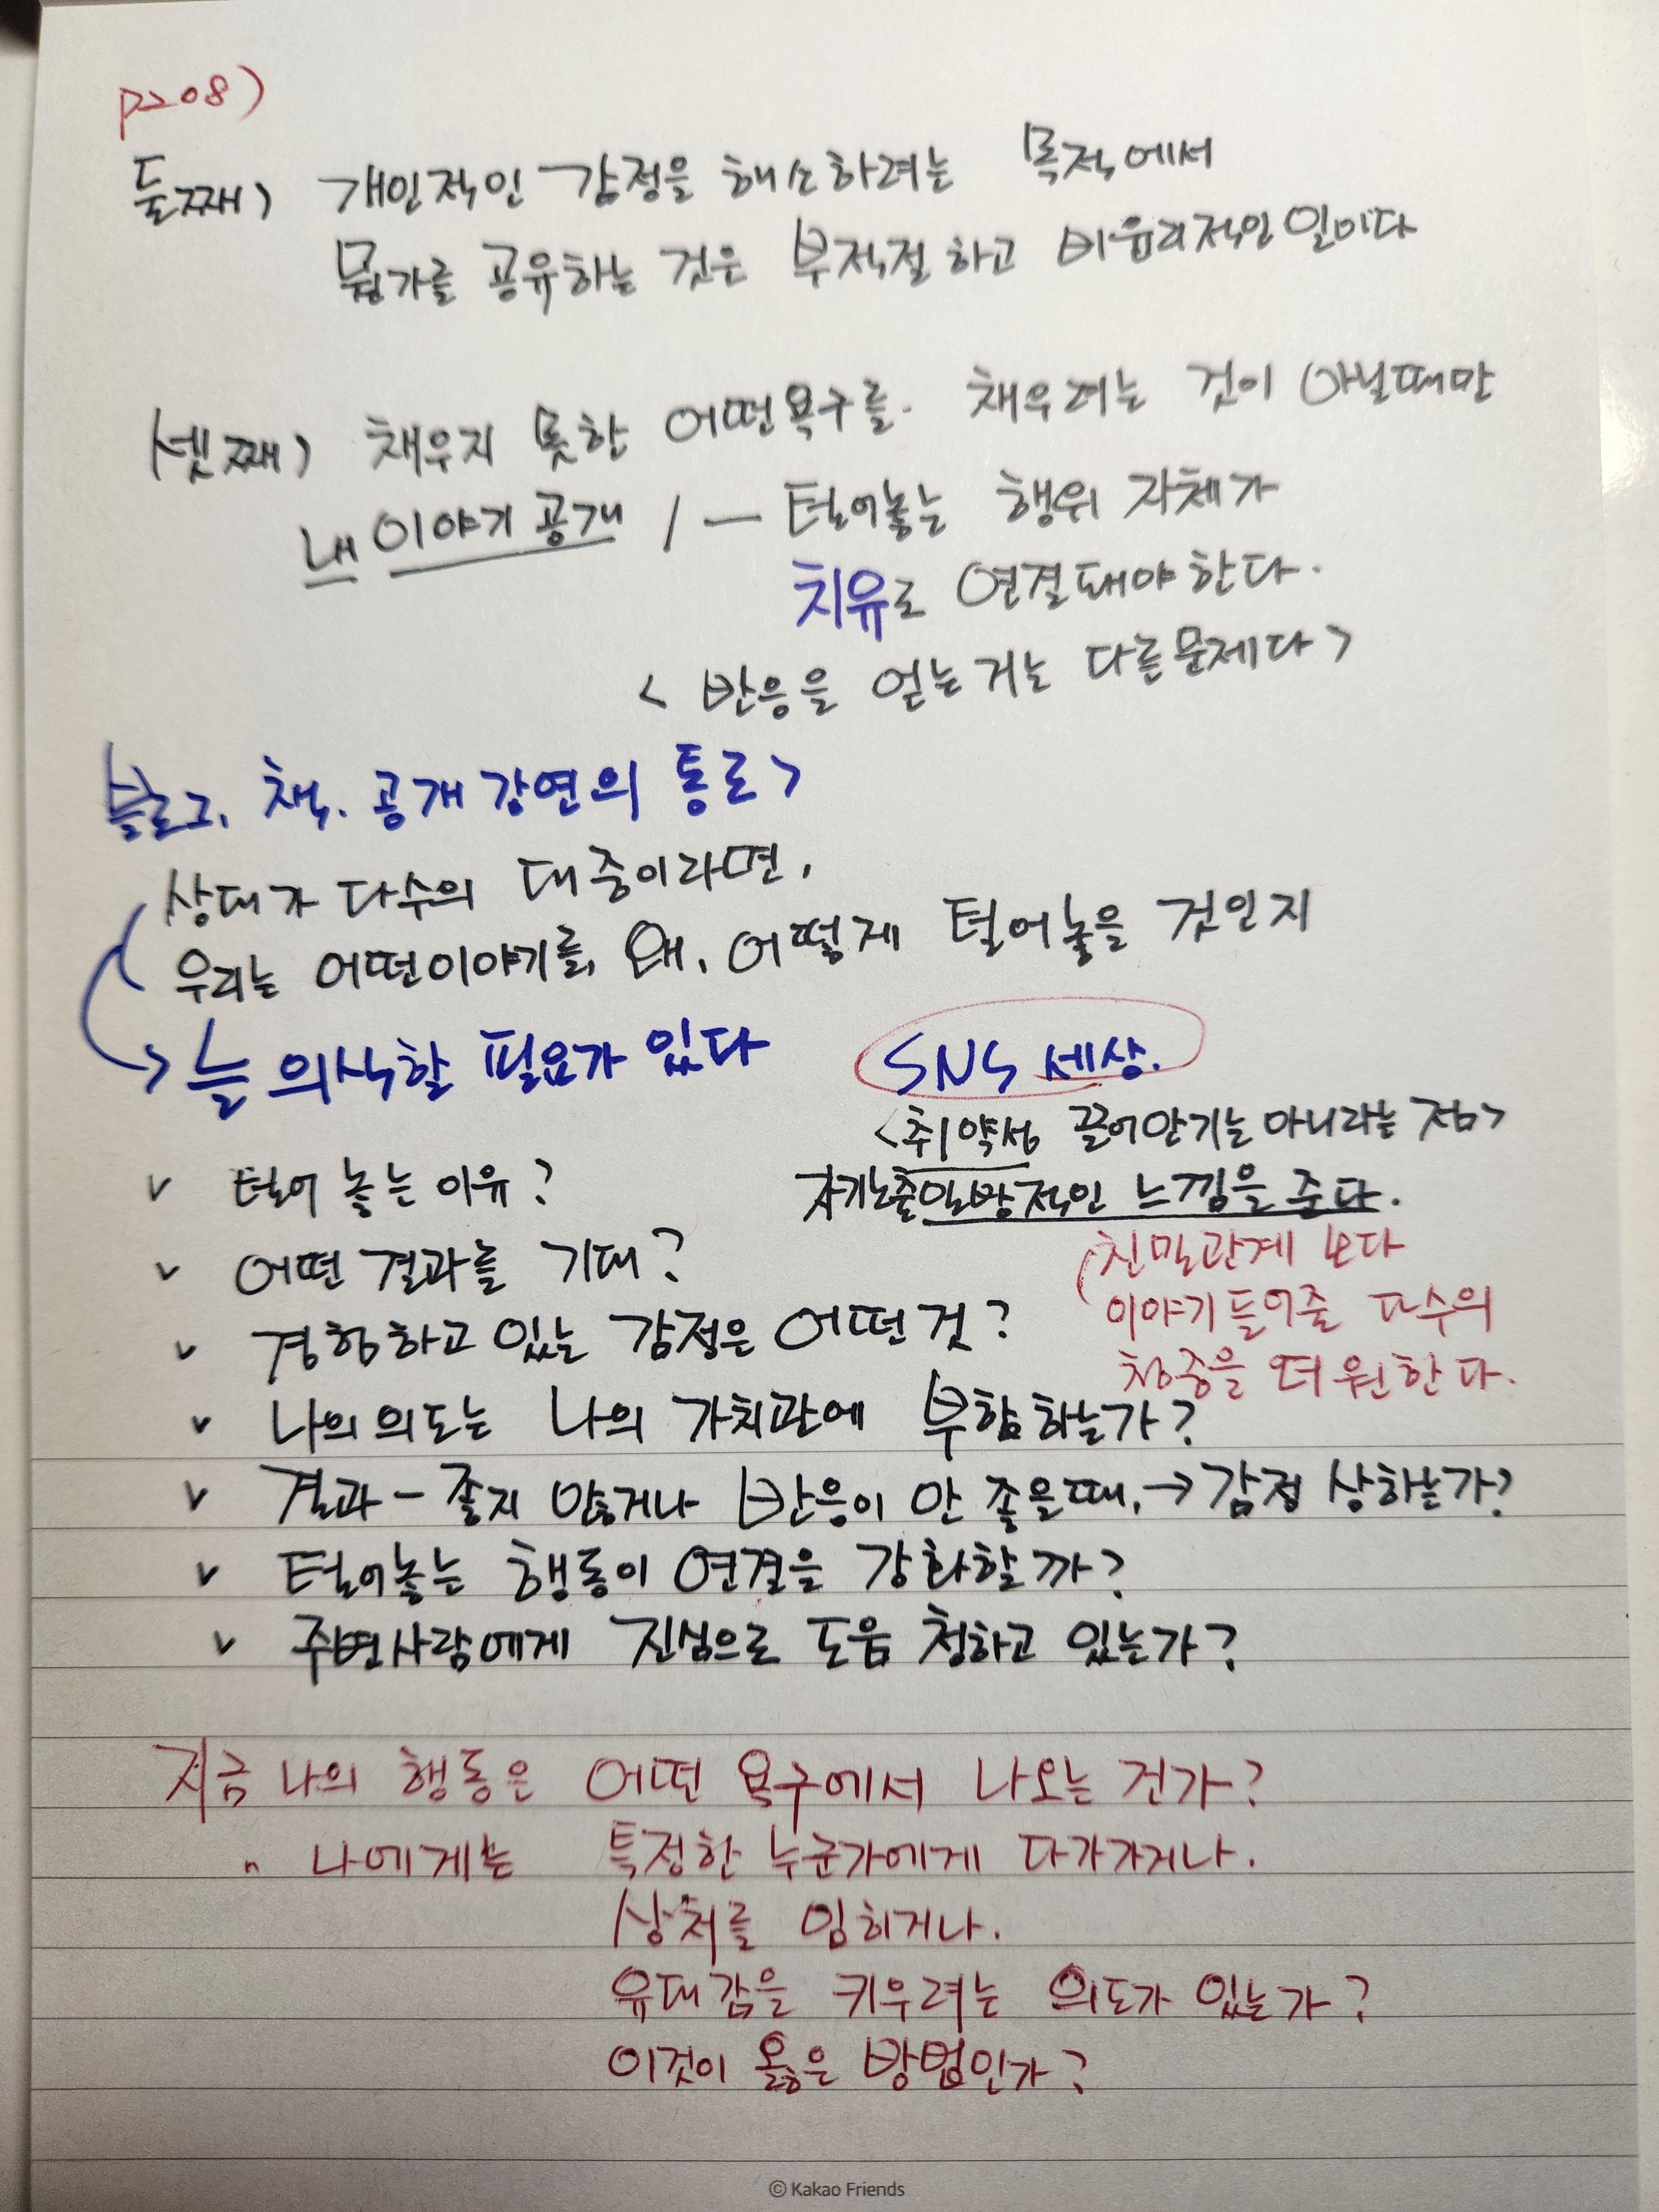 P208)
둘째) 개인적인 감정을 해소하려는 목적에서
뭔가를 공유하는 것은 부적절하고 비윤리적인 일이다
셋째) 채우지 못한 어떤 욕구를. 채우려는 것이 아닐때만
내 이야기 공개 / — 털어놓는 행위 자체가
치유로 연결돼야 한다.
< 반응을 얻는거는 다른문제다 >
블로그, 책. 공개 강연의 통로 >
상대가 다수의 대중이라면,
우리는 어떤이야기를, 왜, 어떻게 털어놓을 것인지
→ 늘 의식할 필요가 있다
SNS 세상.
<취약성 끌어안기는 아니라는 점>
자기노출 일방적인 느낌을 준다.
(친밀관계 보다
이야기 들어줄 다수의
청중을 더 원한다.
v 털어 놓는 이유?
v 어떤 결과를 기대?
v 경험하고 있는 감정은 어떤 것?
v 나의 의도는 나의 가치관에 부합하는가?
v 결과 - 좋지 않거나 반응이 안 좋을때, → 감정 상하는가?
v 털어놓는 행동이 연결을 강화할까?
v 주변사람에게 진심으로 도움 청하고 있는가?
지금 나의 행동은 어떤 욕구에서 나오는 건가?
" 나에게는 특정한 누군가에게 다가가거나.
상처를 입히거나.
유대감을 키우려는 의도가 있는가?
이것이 옳은 방법인가?
© Kakao Friends